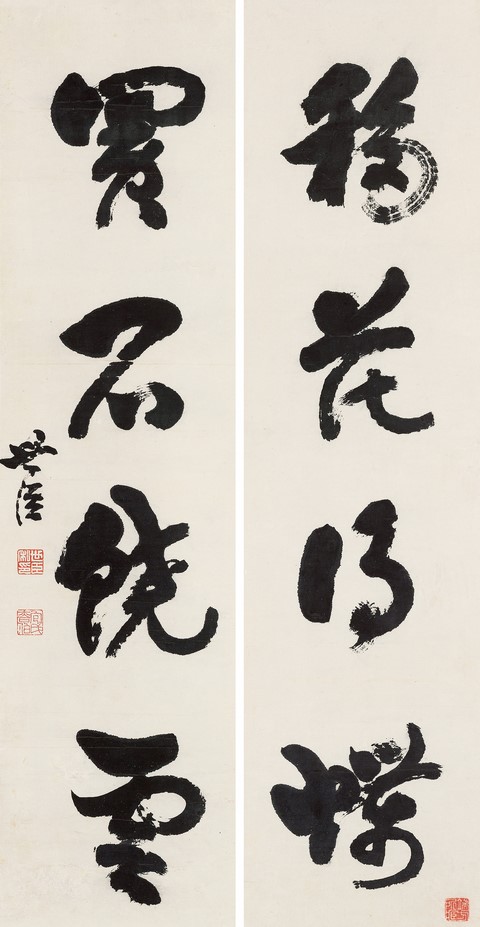 移花得蝶
買石饒雲
世臣